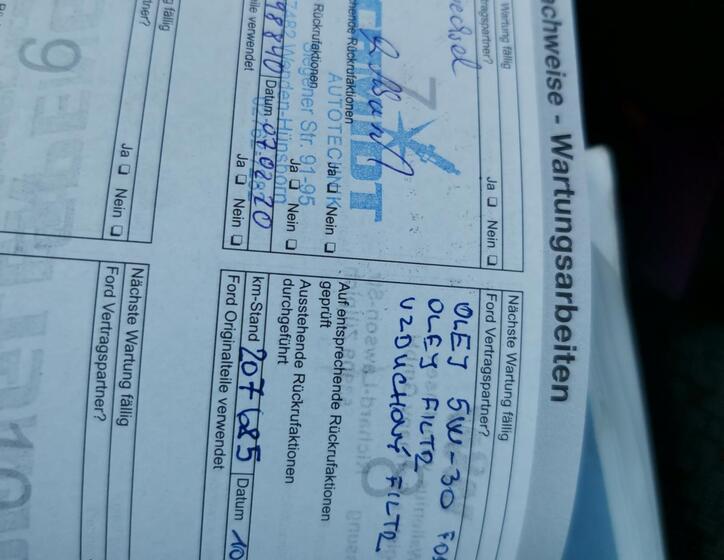 chweise - Wartungsarbeiten
Wartung fällig
rtragspartner?
Ja ❏ Nein ❏
echsel
7
AUTOTECHNIK
Siegener Str. 91-95
Wenden-Hünsborn
Rückrufaktionen
Ja ❏ Nein ❏
Rückrufaktionen
Ja ❏ Nein ❏
98840 Datum 07.02.20
eile verwendet
Ja ❏ Nein ❏
fällig
rtner?
Ja ❏ Nein ❏
9
Nächste Wartung fällig
Ford Vertragspartner?
OLEJ 5W-30
OLEJ FILTR
VZDUCHOVÝ FILTR
8
Auf entsprechende Rückrufaktionen
geprüft
Ausstehende Rückrufaktionen
durchgeführt
km-Stand Datum 10
Ford Originalteile verwendet
Nächste Wartung fällig
Ford Vertragspartner?
10